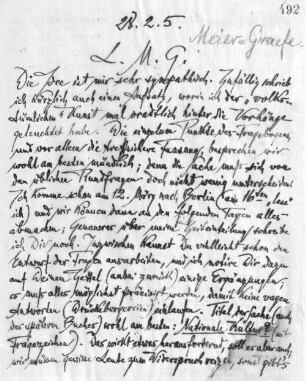 492
28.2.5.
Meier-Graefe
L. M. G.
Die Idee ist mir sehr sympathisch. Zufällig schrieb
ich kürzlich auch einen Aufsatz, worin ich der „volks-
tümlichen" Kunst mal ordentlich hinter die Vorhänge
geleuchtet habe. Die einzelnen Punkte des Fragebogens,
und vor allem die treffsichere Fassung, besprechen wir
wohl am besten mündlich; denn die Sache muß sich von
den üblichen Rundfragen doch nicht wenig unterscheiden.
Ich komme schon am 12. März nach Berlin (am 16ten lese
ich) und wir können dann an den folgenden Tagen alles
abmachen; Genaueres über meine Zeiteinteilung schreibe
ich Dir noch. Inzwischen kannst Du vielleicht schon den
Entwurf der Fragen ausarbeiten, und ich notire Dir dazu
auf Deinen Zettel (anbei zurück) einige Ergänzungen;
es muß alles möglichst präcisirt werden, damit keine vagen
Antworten einlaufen. Titel der Sache (auch
des späteren Buches) wohl am besten: Nationale Kultur? (mit
Fragezeichen). Das wirkt etwas herausfordernd, soll es aber auch;
wir müssen gewisse Leute zum Widerspruch reizen, sonst gibt's